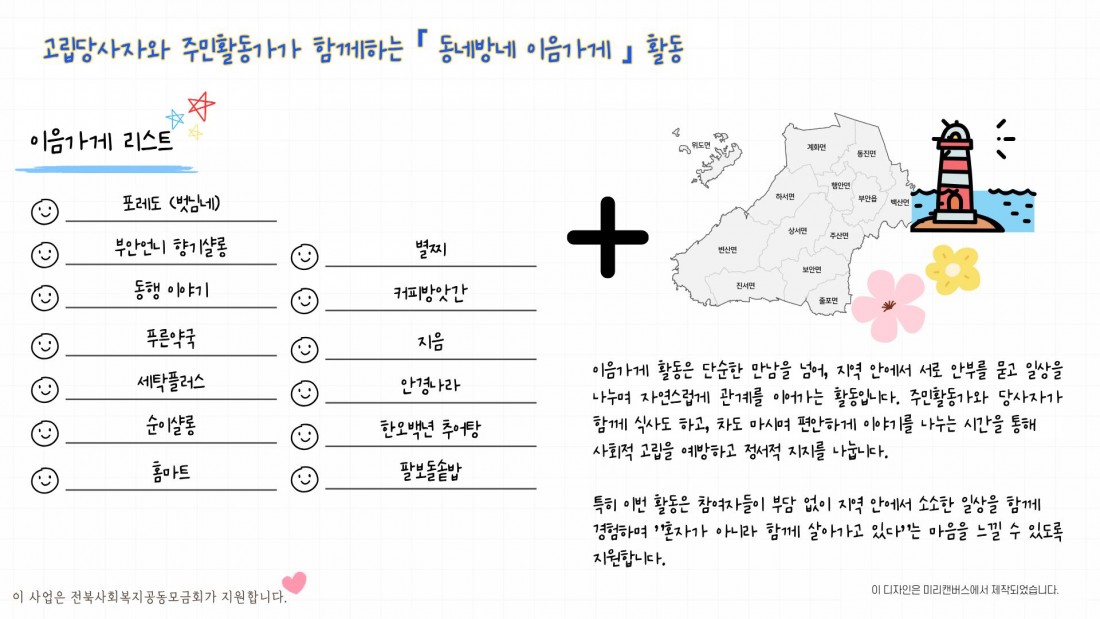 고립당사자와 주민활동가가 함께하는 「 동네방네 이음가게 」 활동
이음가게 리스트
포레도 (벗님네)
부안언니 향기샬롱
동행 이야기
푸른약국
세탁플러스
순이샬롱
홈마트
별찌
커피방앗간
지음
안경나라
한오백년 추어탕
팔보돌솥밥
위도면
계화면
동진면
행안면
하서면
부안읍
백산면
상서면
주산면
변산면
보안면
진서면
줄포면
이음가게 활동은 단순한 만남을 넘어, 지역 안에서 서로 안부를 묻고 일상을
나누며 자연스럽게 관계를 이어가는 활동입니다. 주민활동가와 당사자가
함께 식사도 하고, 차도 마시며 편안하게 이야기를 나누는 시간을 통해
사회적 고립을 예방하고 정서적 지지를 나눕니다.
특히 이번 활동은 참여자들이 부담 없이 지역 안에서 소소한 일상을 함께
경험하며 "혼자가 아니라 함께 살아가고 있다"는 마음을 느낄 수 있도록
지원합니다.
이 사업은 전북사회복지공동모금회가 지원합니다.
이 디자인은 미리캔버스에서 제작되었습니다.